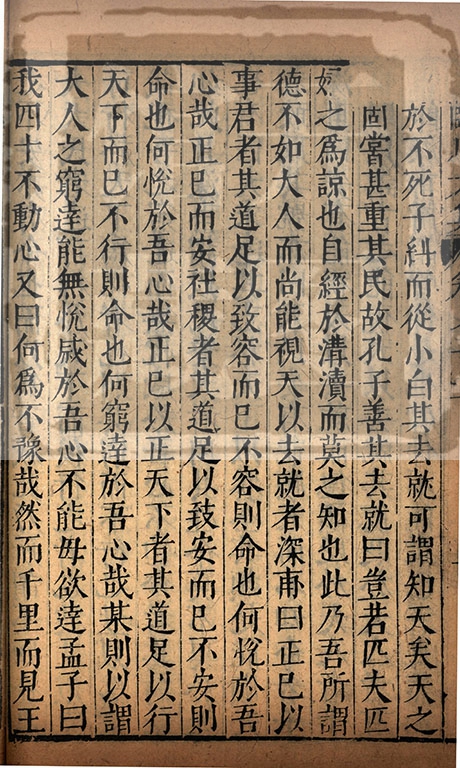 於不死子糾而從小白其去就可謂知天矣天之
固嘗甚重其民故孔子善其去就曰豈若匹夫匹
婦之爲諒也自經於溝瀆而莫之知也此乃吾所謂
德不如大人而尚能視天以去就者深甫曰正已以
事君者其道足以致容而已不容則命也何悅於吾
心哉正已而安社稷者其道足以致安而已不安則
命也何悅於吾心哉正已以正天下者其道足以行
天下而已不行則命也何窮達於吾心哉某則以謂
大人之窮達能無悅戚於吾心不能毋欲達孟子曰
我四十不動心又曰何爲不豫哉然而千里而見王